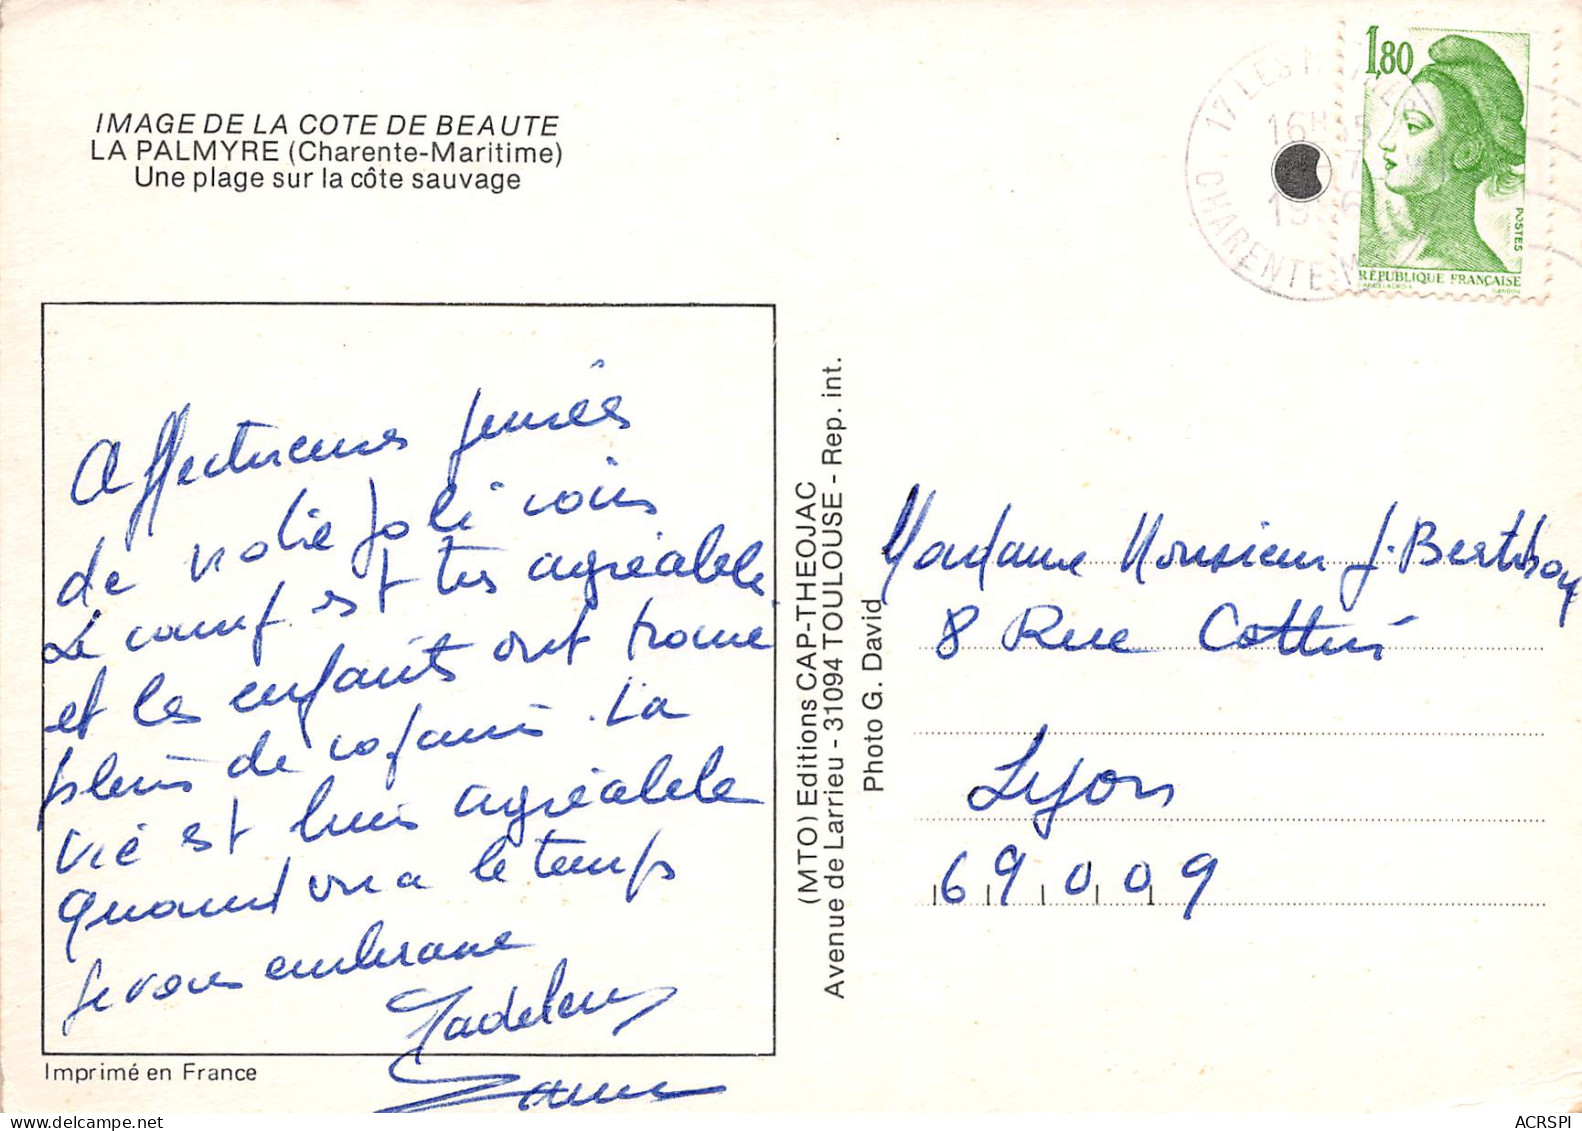 IMAGE DE LA COTE DE BEAUTE
LA PALMYRE (Charente-Maritime)
Une plage sur la côte sauvage
Affectueuses pensées
de notre joli coin
Le camp est très agréable
et les enfants ont trouvé
pleins de copains. La
vie est bien agréable
Quand on a le temps
Je vous embrasse
Madeleine
Imprimé en France
(MTO) Editions CAP-THEOJAC
Avenue de Larrieu - 31094 TOULOUSE - Rep. int.
Photo G. David
17 LES
16H
19 6
CHARENTE-M
1,80
POSTES
RÉPUBLIQUE FRANÇAISE
GANDON
Madame Monsieur J. Berthon
8 Rue Cottin
Lyon
69009
ACRSPI